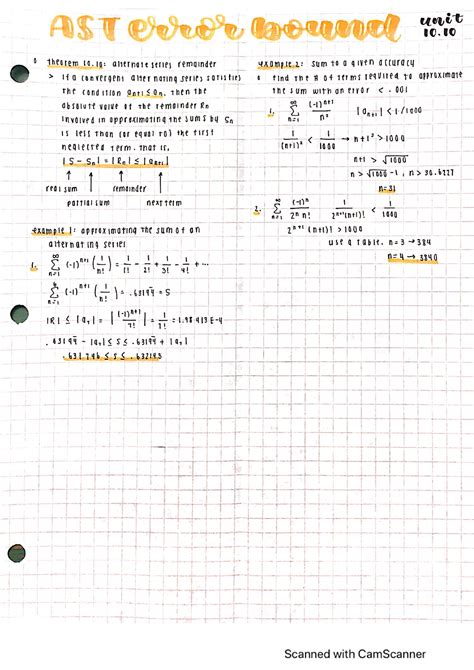 AST error bound
unit
10.10
theorem 10.10: alternate series remainder
> if a convergent alternating series satisfies
the condition aₙ₊₁ ≤ aₙ, then the
absolute value of the remainder Rn
involved in approximating the sum s by Sn
is less than (or equal to) the first
neglected term. that is,
|S - Sₙ| = |Rₙ| ≤ |aₙ₊₁|
real sum
remainder
partial sum
next term
example 1: approximating the sum of an
alternating series
1. ∞ Σ n=1 (-1)ⁿ⁺¹ (1/n!) = 1/1! - 1/2! + 1/3! - 1/4! + ...
6 Σ n=1 (-1)ⁿ⁺¹ (1/n!) = .63194̄ = S
|R| ≤ |a₇| = |(-1)ⁿ⁺¹/7!| = 1/7! = 1.98413 E-4
.63194̄ - |a₇| ≤ S ≤ .63194̄ + |a₇|
.631746 ≤ S ≤ .632143
example 2: sum to a given accuracy
find the # of terms required to approximate
the sum with an error < .001
1. ∞ Σ n=1 (-1)ⁿ⁺¹/n² |aₙ₊₁| < 1/1000
1/(n+1)² < 1/1000 → n+1² > 1000
n+1 > √1000
n > √1000 - 1, n > 30.6227
n=31
2. ∞ Σ n=1 (-1)ⁿ/2ⁿ n! 1/2ⁿ⁺¹(n+1)! < 1/1000
2ⁿ⁺¹ (n+1)! > 1000
use a table. n=3 → 384
n=4 → 3840
Scanned with CamScanner